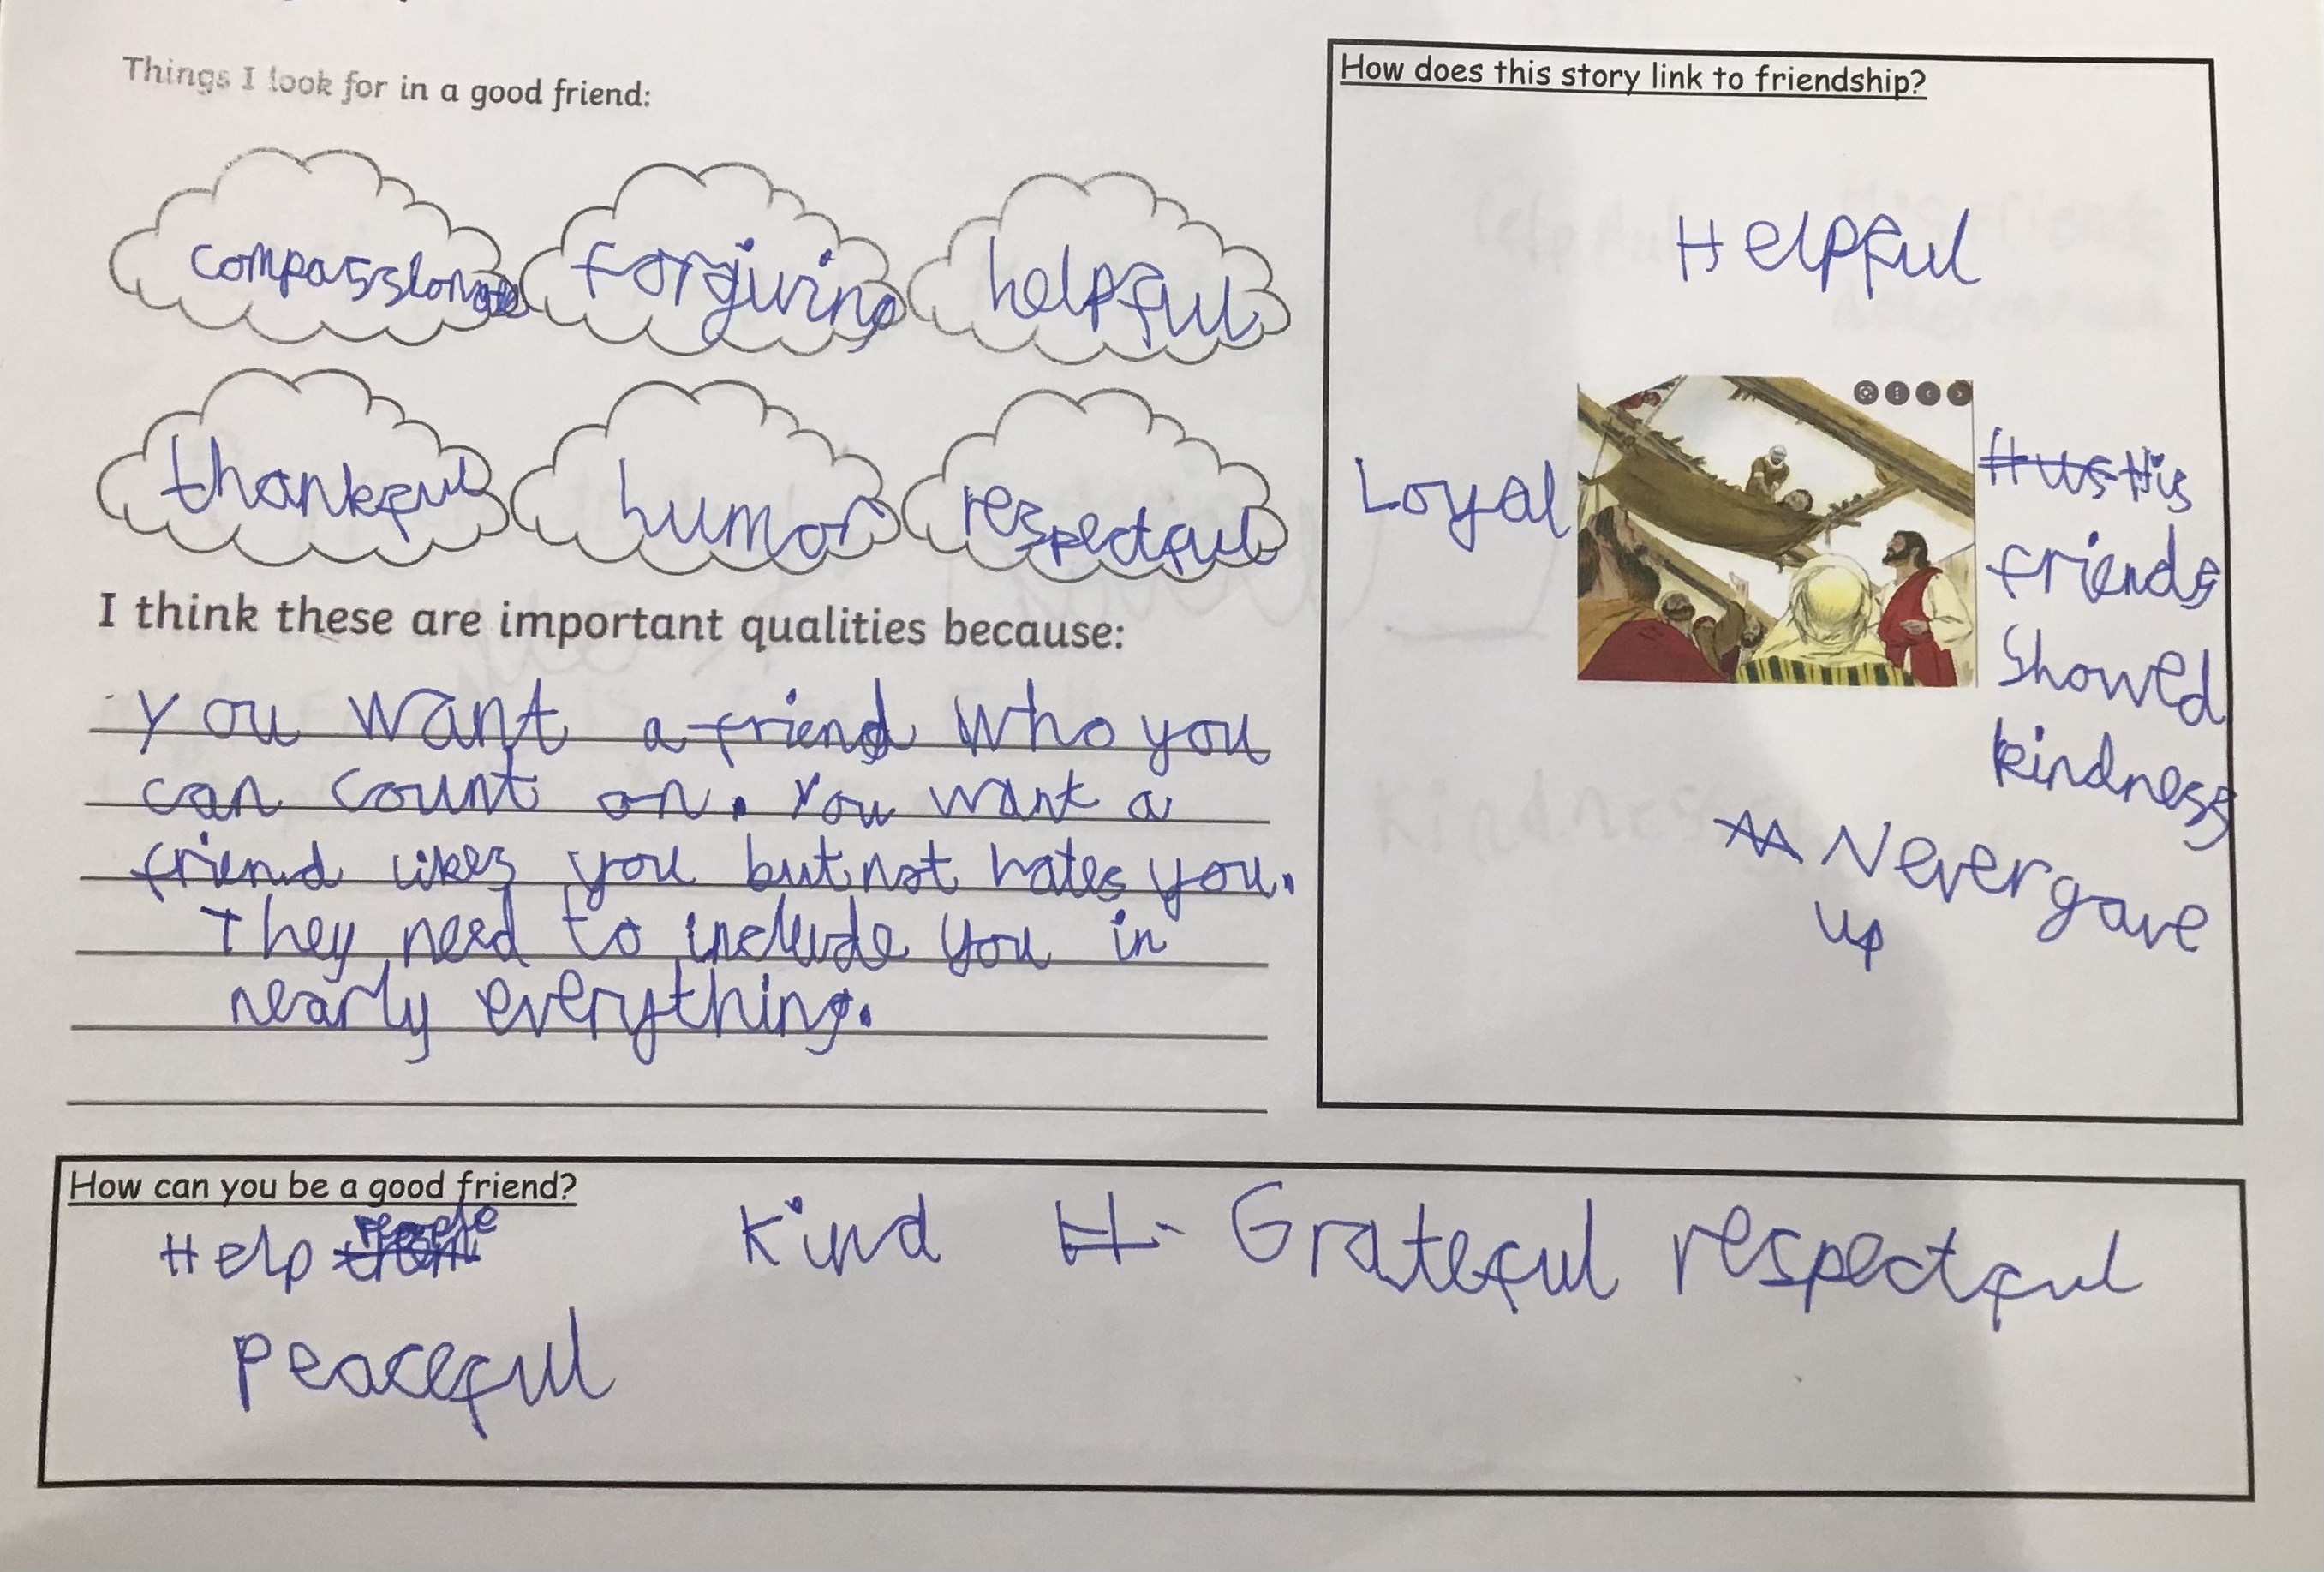 Things I look for in a good friend:
compassionate
forgiving
helpful
thankful
humor
respectful
I think these are important qualities because:
You want a friend who you
can count on. You want a
friend likes you but not hates you.
They need to include you in
nearly everything.
How does this story link to friendship?
Helpful
Loyal
His
friends
Showed
kindness
Never gave
up
How can you be a good friend?
Help people
Kind
Grateful
respectful
Peaceful